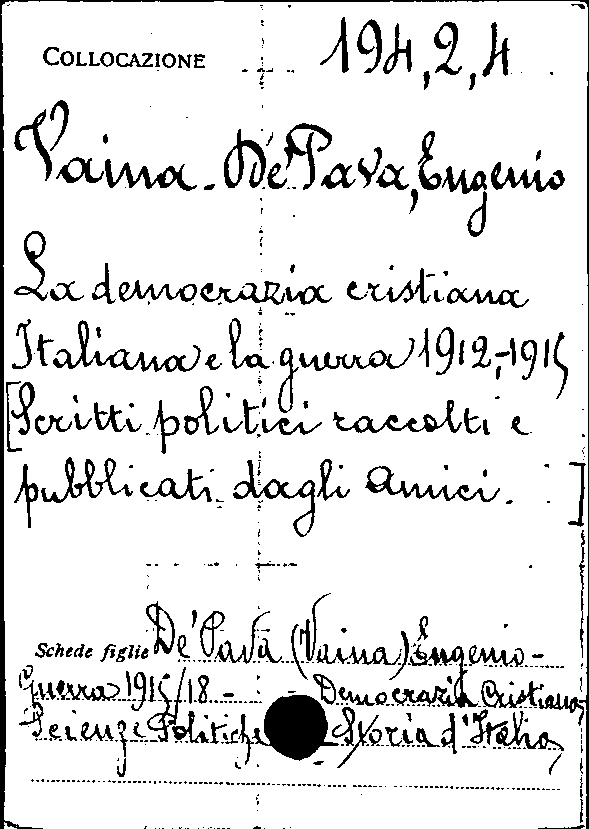 COLLOCAZIONE 194,2,4
Vaina - De' Pava, Eugenio
La democrazia cristiana
Italiana e la guerra 1912,-1915
[Scritti politici raccolti e
pubblicati dagli amici. ]
Schede figlie De' Pava (Vaina) Eugenio -
Guerra 1915/18 - - Democrazia Cristiana,
Scienze Politiche Storia d'Italia,